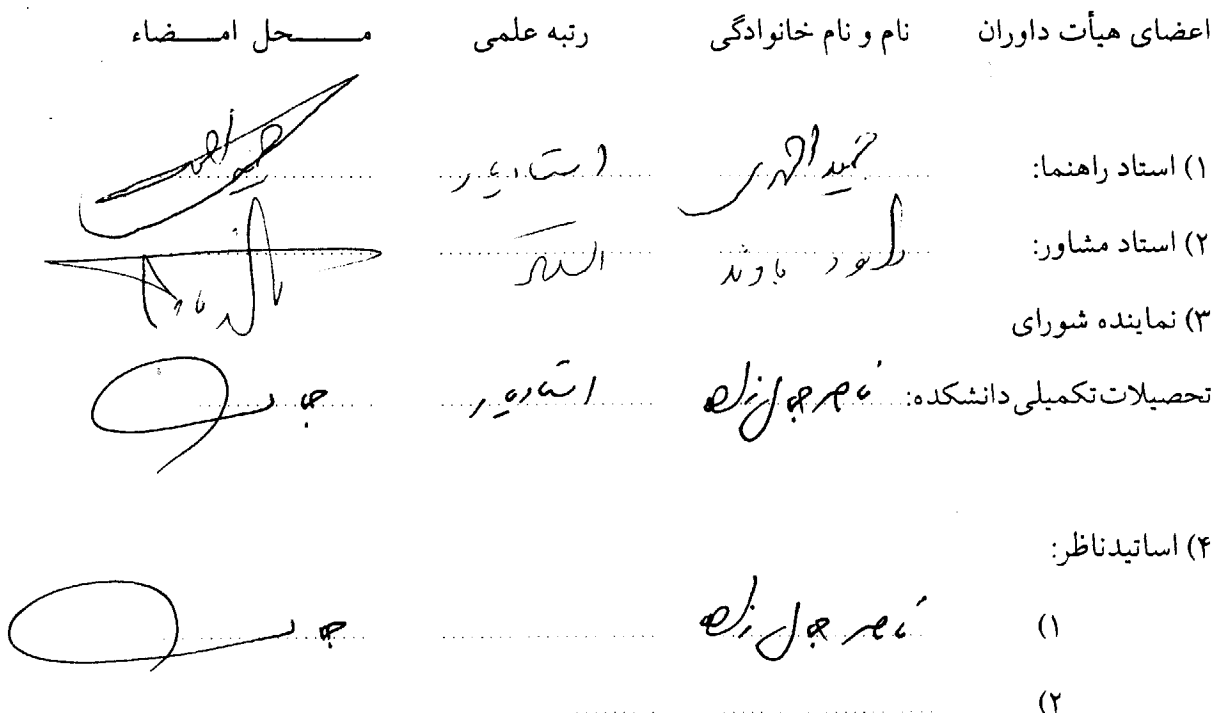 اعضای هیأت داوران نام و نام خانوادگی رتبه علمی مـــحل امـــضاء
۱) استاد راهنما: حمید احمدی استادیار
۲) استاد مشاور: داود باوند
۳) نماینده شورای
تحصیلات تکمیلی دانشکده: ناصر جمال زاده استادیار
۴) اساتیدناظر:
۱) ناصر جمال زاده
۲)